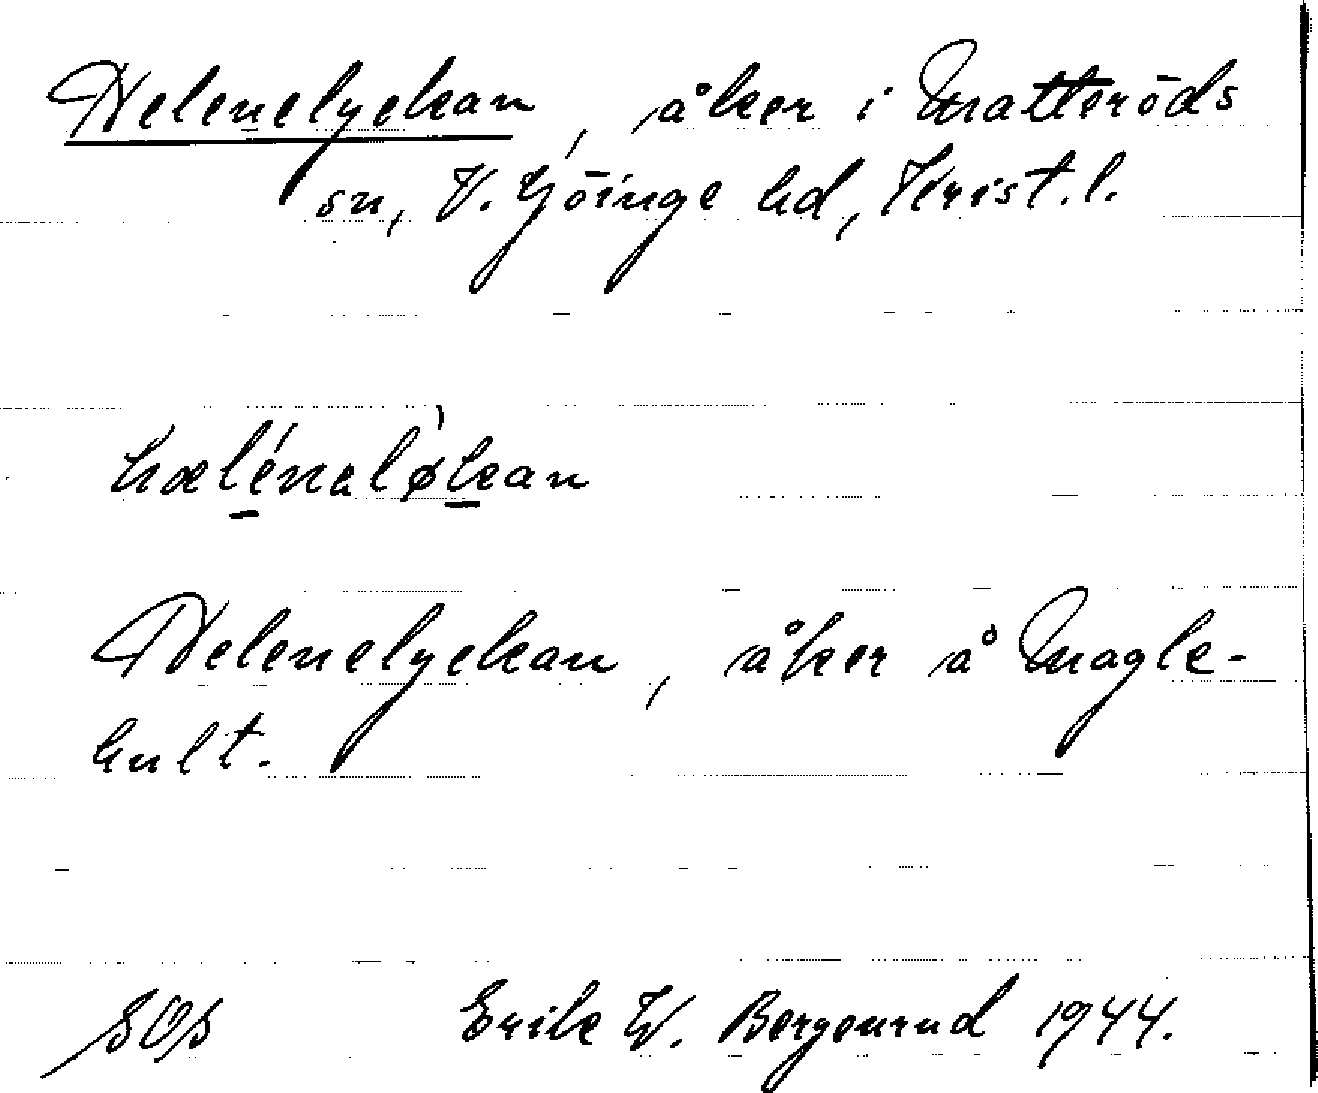 Helenelyckan, åker i Matteröds
sn, V. Göinge hd, Krist. l.
hæle̱´nəlø̀ḵan
Helenelyckan, åker å Magle-
hult.
SOS Erik W. Bergenrud 1944.